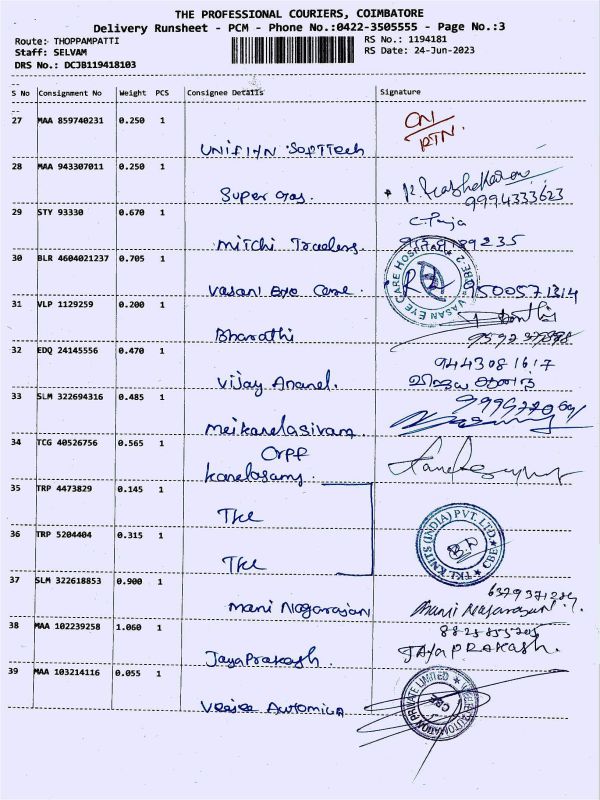 THE PROFESSIONAL COURIERS, COIMBATORE
Delivery Runsheet - PCM - Phone No.:0422-3505555 - Page No.:3
Route: THOPPAMPATTI RS No.: 1194181
Staff: SELVAM RS Date: 24-Jun-2023
DRS No.: DCJB119418103
S No Consignment No Weight PCS Consignee Details Signature
27 MAA 859740231 0.250 1
CN/
RTN.
Unifiyn SoftTech
28 MAA 943307011 0.250 1
Super Gas.
9994333623
29 STY 93330 0.670 1
Mitchi Traders.
30 BLR 4604021237 0.705 1
VASAN EYE CARE HOSPITAL CBE-2
Vasan Eye Care.
31 VLP 1129259 0.200 1
Bharathi
32 EDQ 24145556 0.470 1
9443081617
Vijay Anand.
33 SLM 322694316 0.485 1
Meikandasivam
34 TCG 40526756 0.565 1
CRPF
Kandasamy.
35 TRP 4473829 0.145 1
TKL
36 TRP 5204404 0.315 1
TKL KNITS (INDIA) PVT. LTD. CBE
TKL
37 SLM 322618853 0.900 1
Mani Nagarajan
38 MAA 102239258 1.060 1
JAYAPRAKASH.
JayaPrakash.
39 MAA 103214116 0.055 1
AUTOMATION PRIVATE LIMITED
CBE